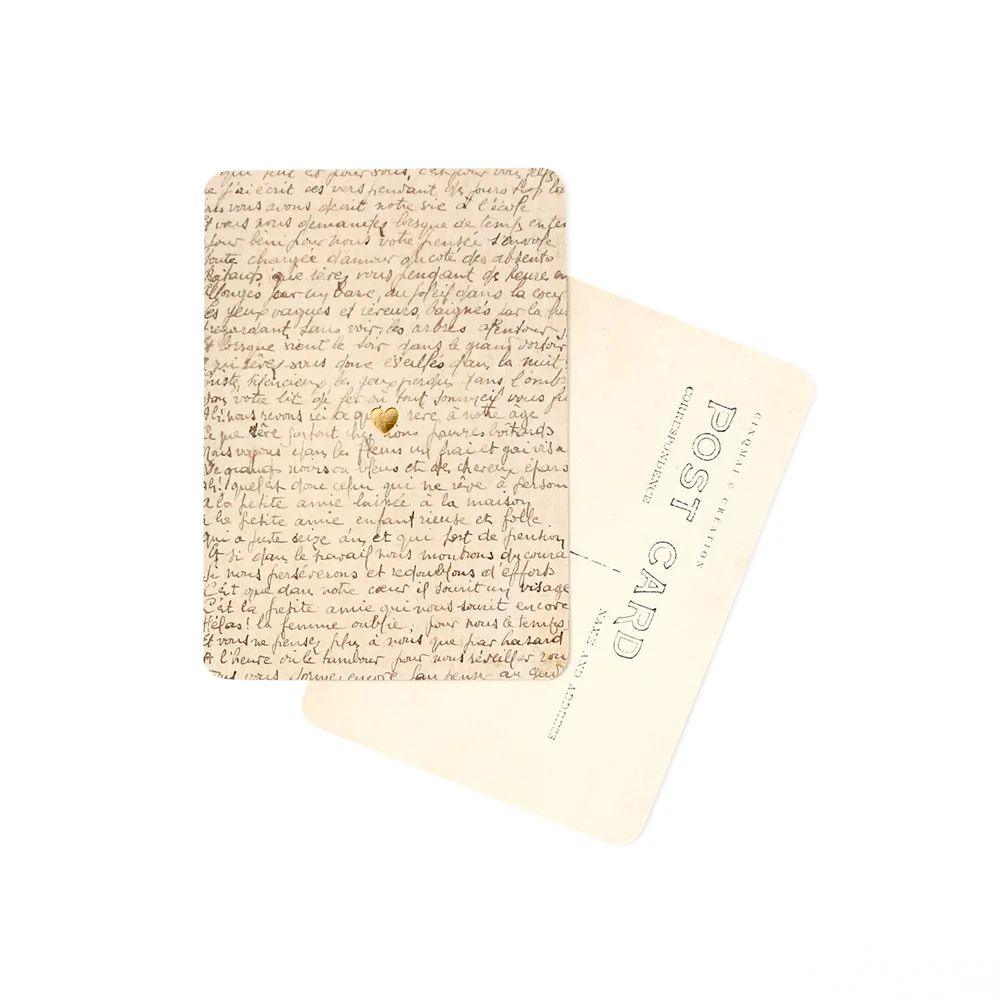 est pour vous, c'est pour vous
j'ai écrit ces vers pendant des jours trop
vous avons décrit notre vie à l'école
Et vous nous demandez lorsque de temps
pour béni pour nous votre pensée s'envole
Toute chargée d'amour du coté des absents
que rêvez vous pendant de heure en
Allongés sur un banc, au soleil dans la cour
Les yeux vagues et rêveurs, baignés par la
regardant sans voir, les arbres d'entour
Et lorsque vient le soir dans le grand dortoir
rêvez vous donc éveillés dans la nuit
silencieux, les yeux perdus dans l'ombre
votre lit de fer où tout sommeil vous
nous revons ici ce qu rêve à notre age
Ce que rêve surtout nous pauvres
Nous voyons dans les fleurs un frai et gai
De grands noirs ou bleus et de cheveux épars
Ah! quel est donc celui qui ne rêve à person
A la petite amie laissée à la maison
A la petite amie enfant rieuse et folle
qui a juste seize ans et qui sort de pension
Et si dans le travail nous montrons du coura
Si nous persévérons et redoublons d'efforts
C'ét que dans notre cœur il sourit un visage
C'ét la petite amie qui nous sourit encore
Hélas! la femme oublie pour nous le temps
Et vous ne pensez plus à nous que par hasard
A l'heure où le tambour pour nous réveiller
vous encore sans penser au
CINQMAI © CRÉATION
POST CARD
CORRESPONDENCE
NAME AND ADDRESS